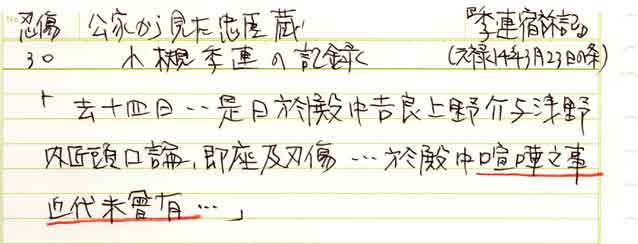 刃傷 公家から見た忠臣蔵 『季連宿祢記』
30 小槻季連の記録 (元禄14年3月23日の条)
「去十四日‥是日於殿中吉良上野介与浅野
内匠頭口論,即座及刃傷…於殿中喧嘩之事
近代未曾有…」